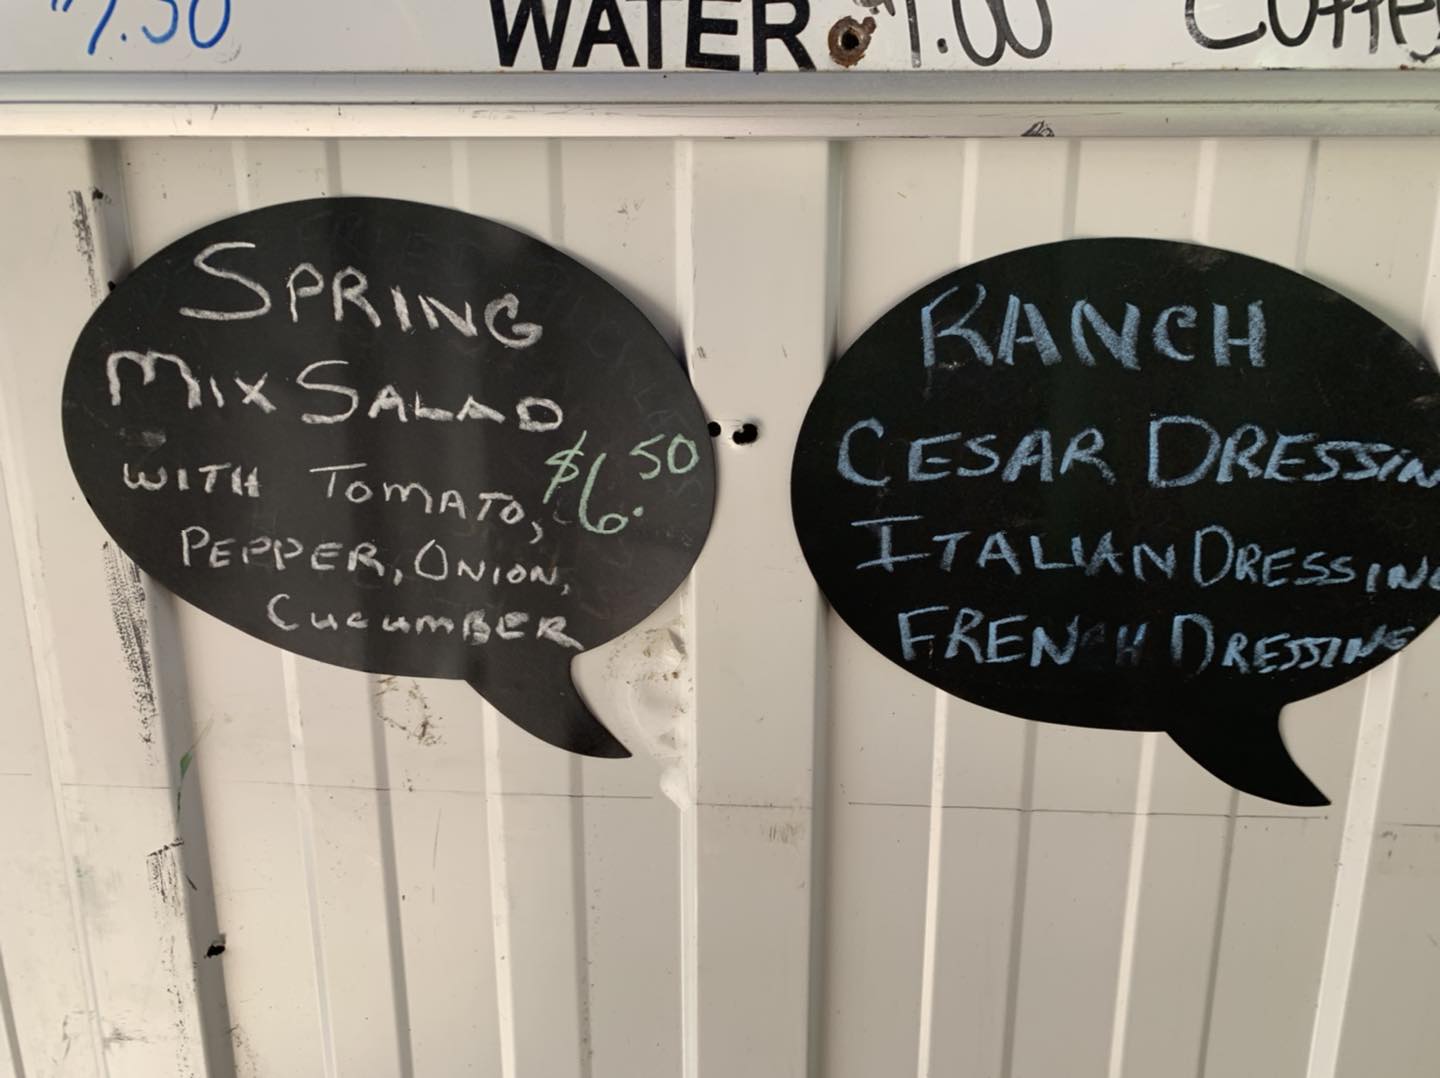 7.50
WATER $1.00
Coffe
SPRING
MIX SALAD
WITH TOMATO, $6.50
PEPPER, ONION,
CUCUMBER
RANCH
CESAR DRESSIN
ITALIAN DRESSING
FRENCH DRESSING